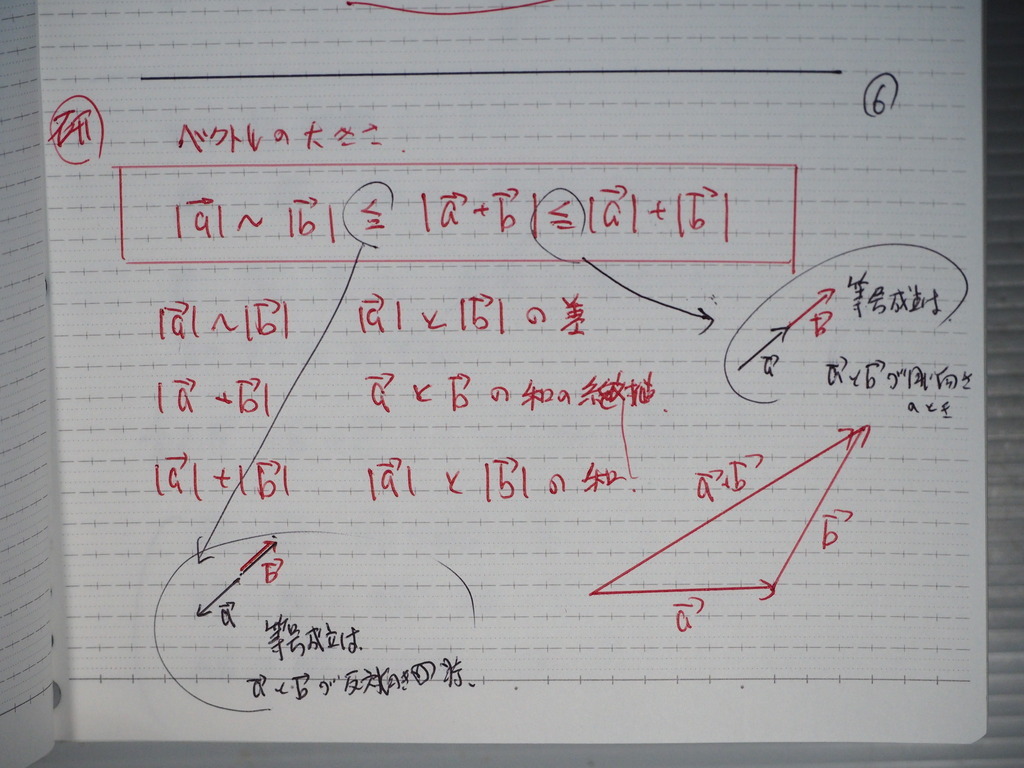 ⑥
研
ベクトルの大きさ.
|a⃗| ~ |b⃗| ≦ |a⃗ + b⃗| ≦ |a⃗| + |b⃗|
|a⃗| ~ |b⃗| |a⃗| と |b⃗| の差
|a⃗ + b⃗| a⃗ と b⃗ の和の
|a⃗| + |b⃗| |a⃗| と |b⃗| の和.
a⃗ b⃗ 等号成立は
a⃗ と b⃗ が同じ向き
のとき
a⃗+b⃗
b⃗
a⃗
b⃗
a⃗
等号成立は.
a⃗ と b⃗ が反対向きの時.